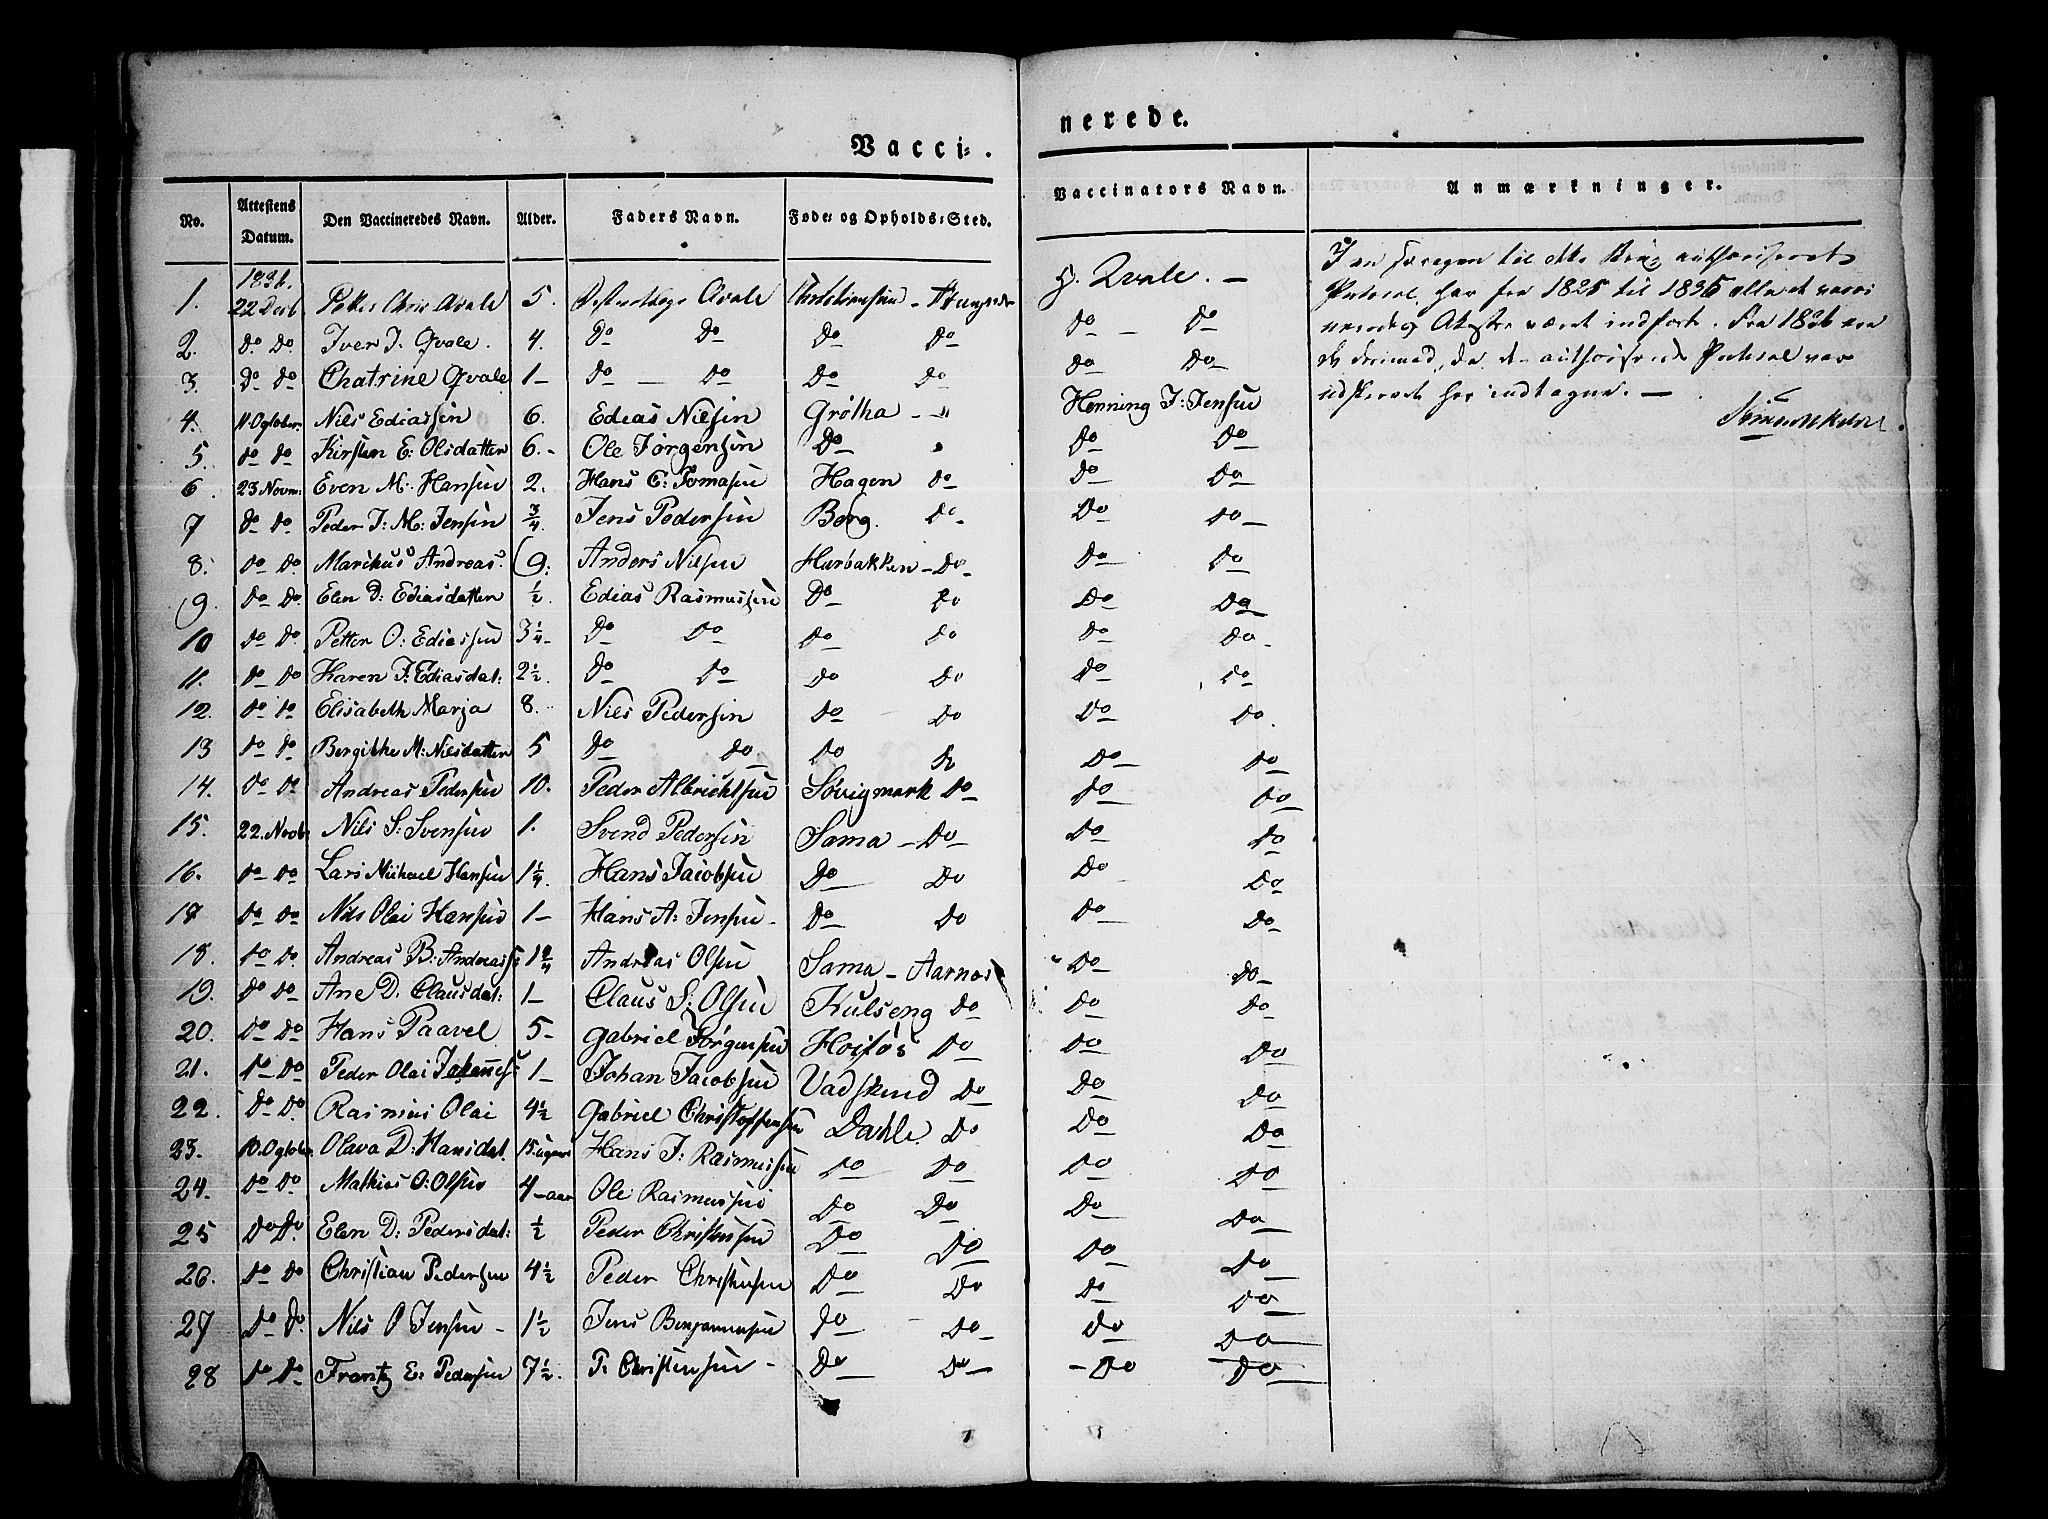 Vacci= nerede.
No. Attestens Datum. Den Vaccineredes Navn. Alder. Faders Navn. Føde= og Opholds=Sted. Vaccinators Navn. Anmærkninger.
1836.
1. 22 Petter Chris Qvale 5. Qvale Christiansund H. Qvale. —
2. Do Do Iver J: Qvale. 4. Do Do Do Do Do — Do
3. Do Do Chatrine Qvale 1— Do — Do Do Do Do Do
4. 11. Ogtober. Nils Ediassen 6. Edias Nilsen Grøtha — " Henning J: Jensen
5. Do Do Kirsten E: Olsdatter 6.- Ole Jørgensen Do " Do Do
6. 23 Novm: Even M: Hansen 2. Hans C: Tomasen Hagen Do Do Do
7 Do Do Peder J: M: Jensen 3/4 Jens Pedersen Berg. Do- Do Do—
8. Do Do. Marikus Andreas: 9: Anders Nilsen Hurbakken — Do- Do Do
9. Do Do. Elen D: Ediasdatter 1/2. Edias Rasmussen Do Do Do Do
10 Do Do. Petter O: Ediassen 3 1/4- Do Do Do Do Do Do-
11. Do Do Karen J: Ediasdat: 2 1/2. Do Do Do Do Do Do
12. Do Do Elisabeth Marja 8. Nils Pedersen Do Do Do Do.
13 Do Do Bergithe M: Nilsdatter 5 Do Do Do Do Do Do
14. Do Do Andreas Pedersen 10. Peder Albrichtsen Søvigmark Do Do Do
15. 22. Novb: Nils S: Svensen 1. Svend Pedersen Sama — Do Do Do
16. Do Do Lars Michael Hansen 1 1/4. Hans Jacobsen Do Do Do Do
17 Do Do Nils Olai Hansen 1— Hans A: Jensen- Do Do Do Do
18. Do Do. Andreas B: Andreass: 1 Andreas Olsen Sama — Aarnæs Do Do-
19. Do Do Ane D: Clausdat: 1— Claus S: Olsen Kulseng Do Do Do
20. Do Do Hans Paavel 5- Gabriel Jørgensen Do Do Do
21. Do Do Peder Olai Johannes: 1— Johan Jacobsen Do Do Do
22. Do Do Rasmus Olai 4 1/2 Gabriel Christoffersen Dahle. Do Do Do
23. 10. Ogtober. Olava D: Hansdat. 15. uger Hans J: Rasmussen Do Do Do Do
24. Do Do. Mathias O: Olsen 4 —aar Ole Rasmussen Do Do Do Do
25 Do Do. Elen D: Pedersdat: 1/2 Peder Christensen Do Do Do Do
26. Do Do Christian Pedersen 4 1/2 Peder Christensen Do Do Do Do
27 Do Do. Nils O Jensen — 1 1/2 Jens Benjaminsen Do Do Do Do
28 Do Do Frantz E: Pedersen 7 1/2. P: Christensen — Do Do — Do Do
I en foregen til dette Brug authoriseret
Protocol, har fra 1825 til 1835 alle de vacci
neredes Atester været indført. Fra 1836 ere
de derimod, da den authoriserede Protocol var
udskrevet her indtagne. —